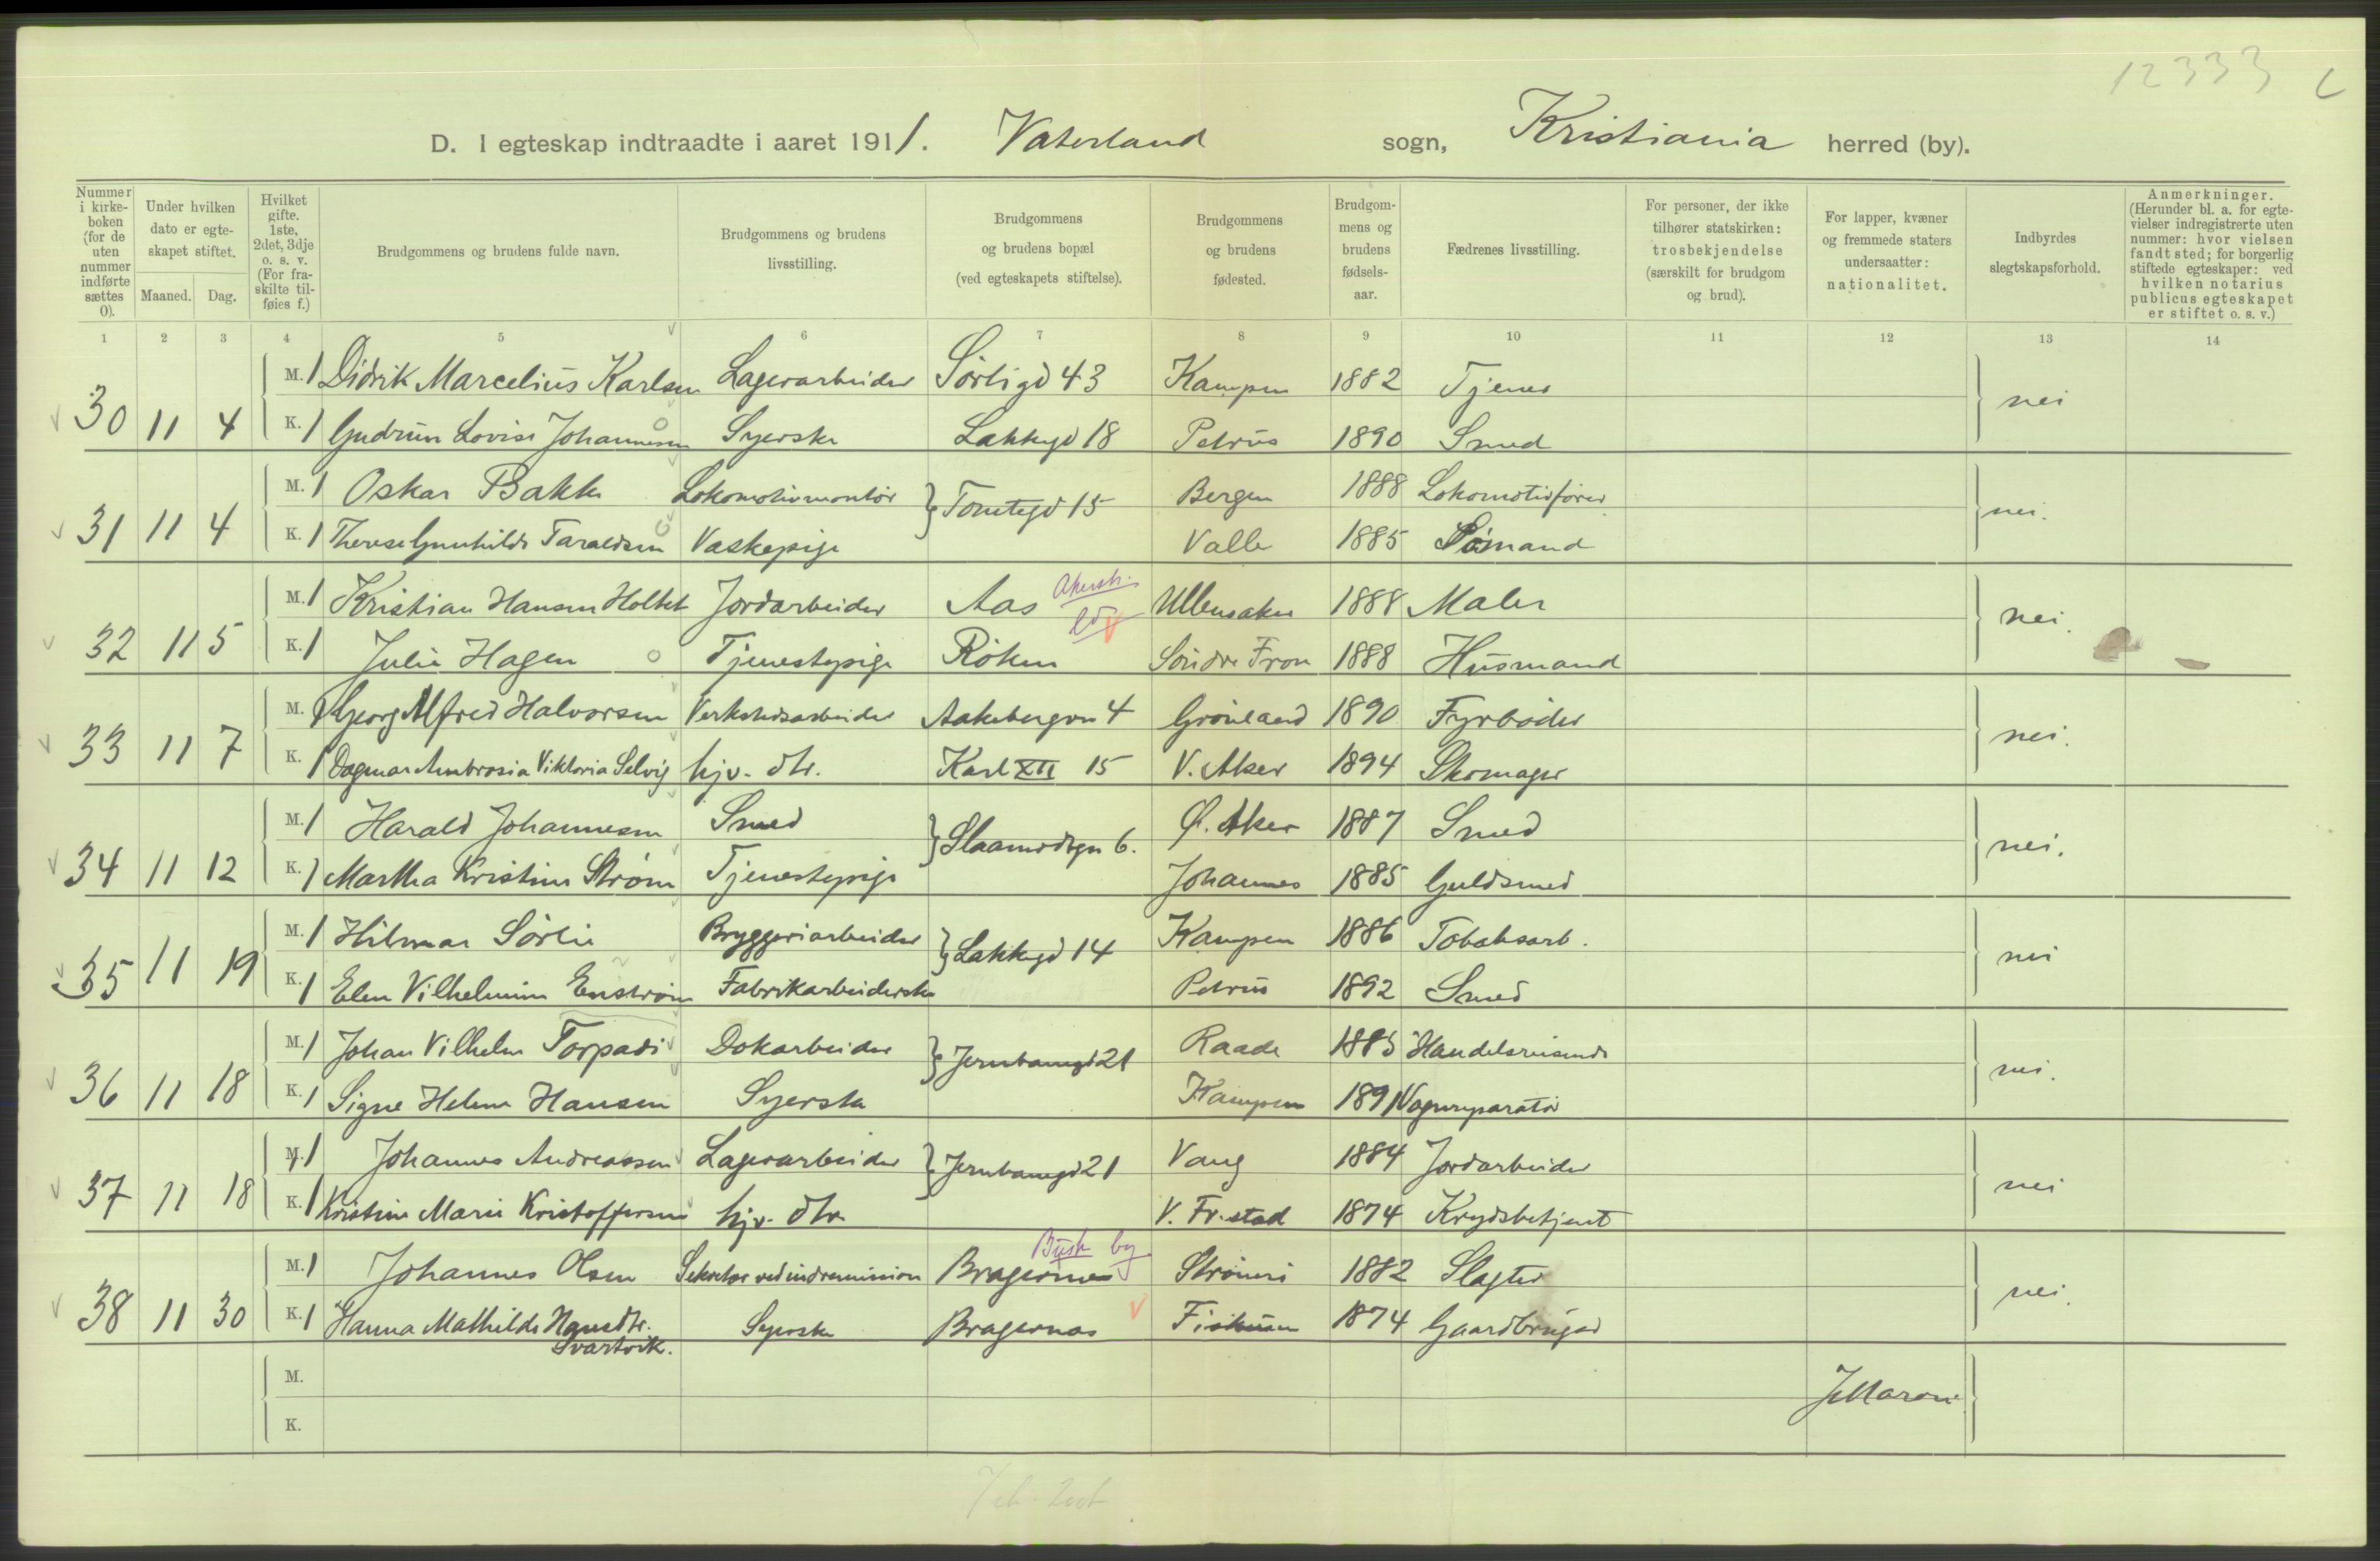 12333 L
D. I egteskap indtraadte i aaret 1911. Vaterland sogn, Kristiania herred (by).
Nummer i kirkeboken (for de uten nummer indførte sættes 0).
Under hvilken dato er egteskapet stiftet.
Maaned. Dag.
Hvilket gifte. 1ste, 2det, 3dje o. s. v. (For fraskilte tilføies f.)
Brudgommens og brudens fulde navn.
Brudgommens og brudens livsstilling.
Brudgommens og brudens bopæl (ved egteskapets stiftelse).
Brudgommens og brudens fødested.
Brudgommens og brudens fødselsaar.
Fædrenes livsstilling.
For personer, der ikke tilhører statskirken: trosbekjendelse (særskilt for brudgom og brud).
For lapper, kvæner og fremmede staters undersaatter: nationalitet.
Indbyrdes slegtskapsforhold.
Anmerkninger. (Herunder bl. a. for egtevielser indregistrerte uten nummer: hvor vielsen fandt sted; for borgerlig stiftede egteskaper: ved hvilken notarius publicus egteskapet er stiftet o. s. v.)
1 2 3 4 5 6 7 8 9 10 11 12 13 14
M. 1 Didrik Marcelius Karlsen Lagerarbeider Sørligd 43 Kampen 1882 Tjener
30 11 4 K. 1 Gudrun Lovise Johannesen Syerske Lakkegd 18 Petrus 1890 Smed nei
M. 1 Oskar Bakke Lokomotivmontør } Tomtegd 15 Bergen 1888 Lokomotivfører
31 11 4 K. 1 Therese Gunhilde Taraldsen Vaskepige Valle 1885 Sømand nei.
M. 1 Kristian Hansen Holtet Jordarbeider Aas Akersh. Ullensaker 1888 Maler
32 11 5 K. 1 Julie Hagen Tjenestepige Röken Söndre Fron 1888 Husmand nei.
M. 1 Georg Alfred Halvorsen Verkstedsarbeider Aakebergvn 4 Grönland 1890 Fyrbøder
33 11 7 K. 1 Dagmar Ambrosia Viktoria Selvig hjv. dtr. Karl XII 15 V. Aker 1894 Skomager nei.
M. 1 Harald Johannesen Smed } 6. Ø. Aker 1887 Smed
34 11 12 K. 1 Martha Kristine Strøm Tjenestepige Johannes 1885 Guldsmed nei.
M. 1 Hilmar Sörlie Bryggeriarbeider } Lakkegd 14 Kampen 1886 Tobaksarb.
35 11 19 K. 1 Elen Vilhelmine Enstrøm Fabrikarbeiderske Petrus 1892 Smed nei
M. 1 Johan Vilhelm Torpadi Dokarbeider } Jernbanegd 21 Raade 1885 Handelsreisende
36 11 18 K. 1 Signe Helene Hansen Syerske Kampen 1891 Vognreparatør nei.
M. 1 Johannes Andreassen Lagerarbeider } Jernbanegd 21 Vang 1884 Jordarbeider
37 11 18 K. 1 Kristine Marie Kristoffersen hjv. dtr. V. Fr.stad 1874 Krydsbetjent nei
M. 1 Johannes Olsen Sekretær ved indremission Bragernes Busk by Strömm 1882 Slagter
38 11 30 K. 1 Hanna Mathilde Hansdtr. Svartvik. Syerske Bragernas Fiskum 1874 Gaardbruger nei.
M.
K.